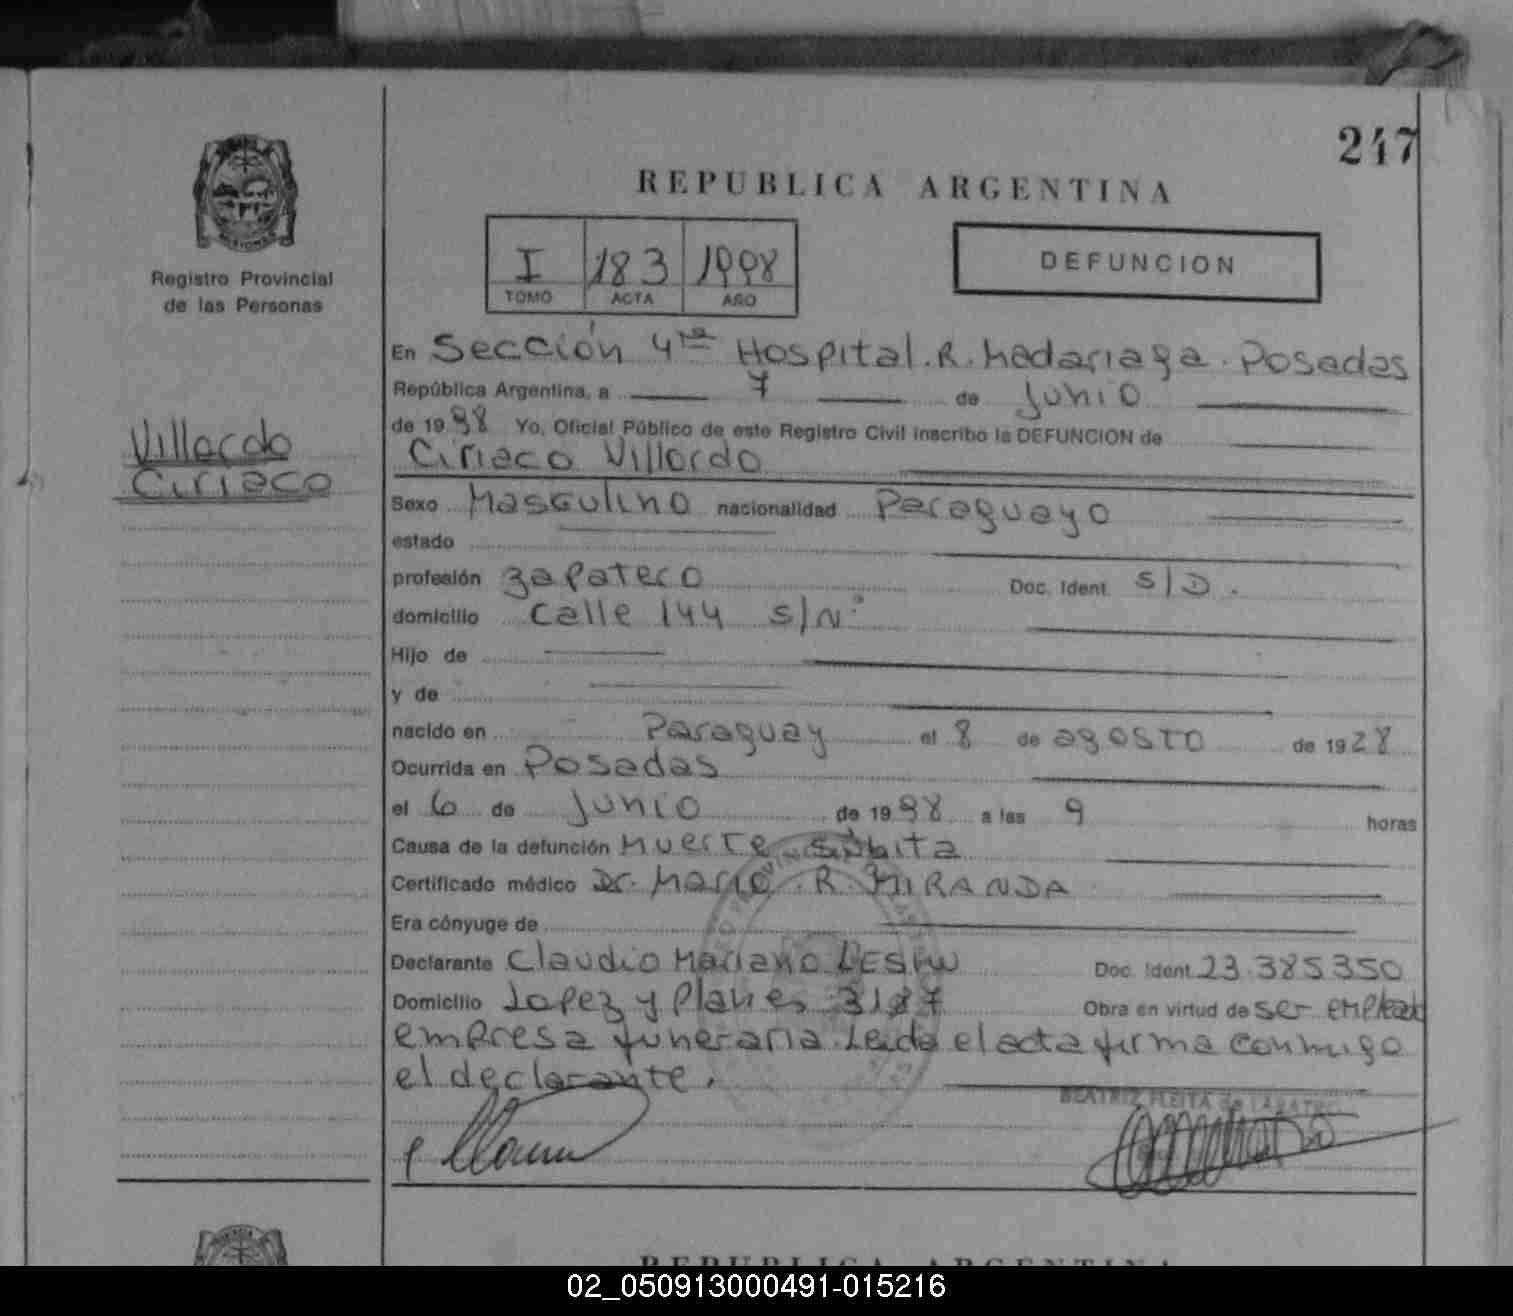 247
REPUBLICA ARGENTINA
Registro Provincial
de las Personas
I 183 1998
TOMO ACTA AÑO
DEFUNCION
En Sección 4ta Hospital. R. Madariaga. Posadas
República Argentina, a 7 de Junio
de 1998 Yo, Oficial Público de este Registro Civil inscribo la DEFUNCION de
Ciriaco Villordo
Villordo
Ciriaco
Sexo Masculino nacionalidad Paraguayo
estado
profesión zapatero Doc. Ident. S/D.
domicilio calle 144 s/N°
Hijo de
y de
nacido en Paraguay el 8 de agosto de 1928
Ocurrida en Posadas
el 6 de Junio de 1998 a las 9 horas
Causa de la defunción Muerte súbita
Certificado médico Dr. Mario R. MIRANDA
Era cónyuge de
Declarante Claudio Mariano Doc. Ident. 23.385.350
Domicilio Lopez y Planes 3187 Obra en virtud de ser empleado
empresa funeraria. Leída el acta firma conmigo
el declarante.
BEATRIZ FLEITA de
REPUBLICA ARGENTINA
02_050913000491-015216